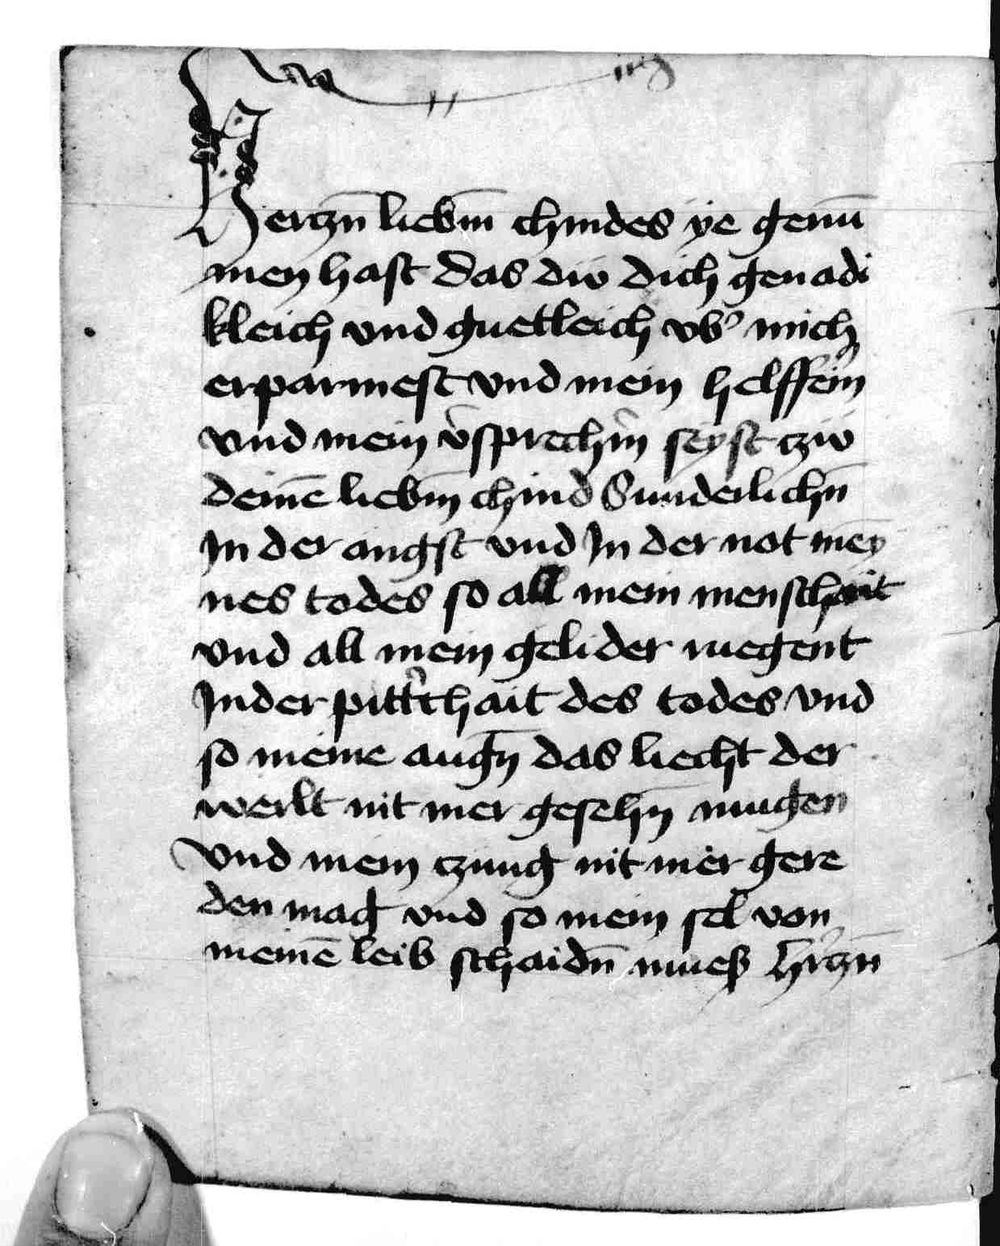 Hertzn̄ liebm̄ chindes ye genū
men hast das dw dich genadi
kleich vnd guetleich vbˀ mich
erparmest vnd mein helfferīn
vnd mein vˀsprechīn seyst tzw
deinē liebm̄ chind Sunderlichn̄
In der angst vnd In der not mey
nes todes so all mein menschait
vnd all mein gelider
In der pittˀchait des todes vnd
so meine augn̄ das liecht der
werlt nit mer gesehn̄ mugen
vnd mein tzung nit mer gere
den mag vnd so mein sel von
meinē leib schaidn̄ mues hˀtzn̄